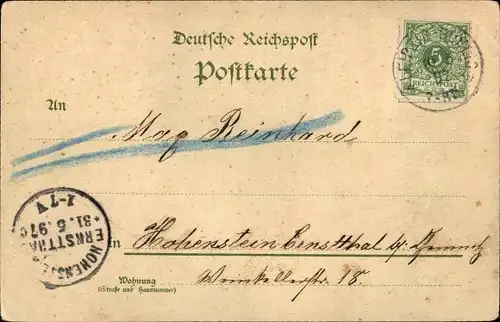 Deutsche Reichspost
Postkarte
5
REICHSPOST
An
Max Reinhard
1-7 V
*31.5.97
HOHENSTEIN ERNSTTHAL
in Hohenstein Ernstthal b/ Chemnitz
Weinkellerstr 18.
Wohnung
(Straße und Hausnummer)